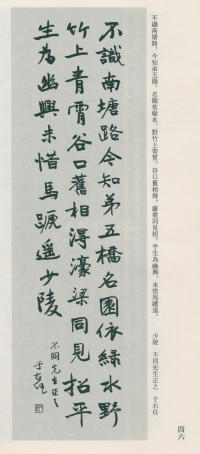 不識南塘路，今知第五橋。名園依綠水，野竹上青霄。谷口舊相得，濠梁同見招。平生為幽興，未惜馬蹄遙。　少陵　不同先生正之　于右任
不識南塘路今知第五橋名園依綠水野
竹上青霄谷口舊相得濠梁同見招平
生為幽興未惜馬蹄遙少陵
不同先生正之
于右任
四六